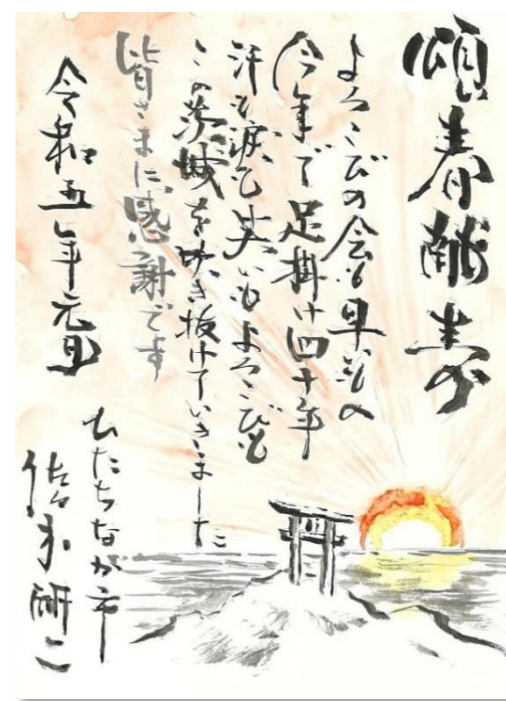 頌春献寿
よろこびの会も早いもの
今年で足掛け四十年
汗も涙も笑いもよろこびも
この茨城を吹き抜けていきました
皆さまに感謝です
令和五年元旦
ひたちなか市
佐々木研二